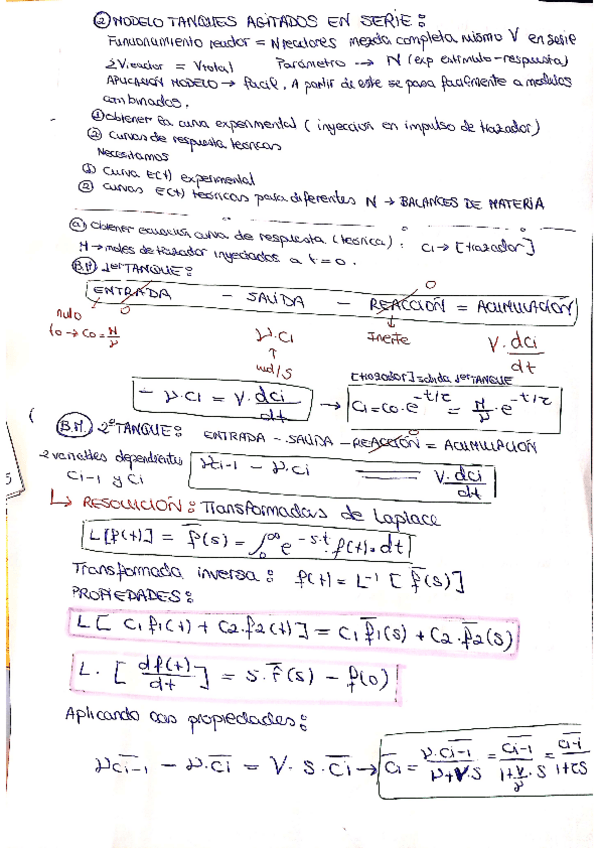 ② MODELO TANQUES AGITADOS EN SERIE:
Funcionamiento reactor = N reactores mezcla completa mismo V en serie
ΣVi reactor = Vtotal Parámetro --> N (exp estímulo-respuesta)
APLICACIÓN MODELO → fácil. A partir de este se pasa fácilmente a modelos
combinados.
① obtener la curva experimental (inyección en impulso de trazador)
② curvas de respuesta teóricas
Necesitamos
① Curva E(t) experimental
② curvas E(t) teóricas para diferentes N → BALANCES DE MATERIA
ⓐ Obtener ecuación curva de respuesta (teórica): Ci → [trazador]
N → moles de trazador inyectados a t=0.
B.M 1er TANQUE:
0
ENTRADA - SALIDA - REACCIÓN = ACUMULACIÓN
nulo 0
to → Co = N/ν
ν.Ci
↑
mol/s
Inerte
V. dci/dt
[trazador] salida 1er TANQUE
- ν.Ci = V. dci/dt → Ci = Co.e^-t/τ = N/ν . e^-t/τ
B.M. 2º TANQUE: ENTRADA - SALIDA - REACCIÓN = ACUMULACIÓN
2 variables dependientes
Ci-1 y Ci
νCi-1 - ν.Ci = V. dci/dt
↳ RESOLUCIÓN: Transformadas de Laplace
L[f(t)] = f̄(s) = ∫₀^∞ e^-s.t f(t).dt
Transformada inversa: f(t) = L⁻¹ [f̄(s)]
PROPIEDADES:
L[ C1 f1(t) + C2.f2(t)] = C1 f̄1(s) + C2.f̄2(s)
L. [ df(t)/dt ] = s.F̄(s) - f(0)
Aplicando las propiedades:
νC̄i-1 - ν.C̄i = V. s. C̄i → C̄i = ν.C̄i-1/ν+V.s = C̄i-1/1+V/ν.s = C̄i-1/1+τs
5